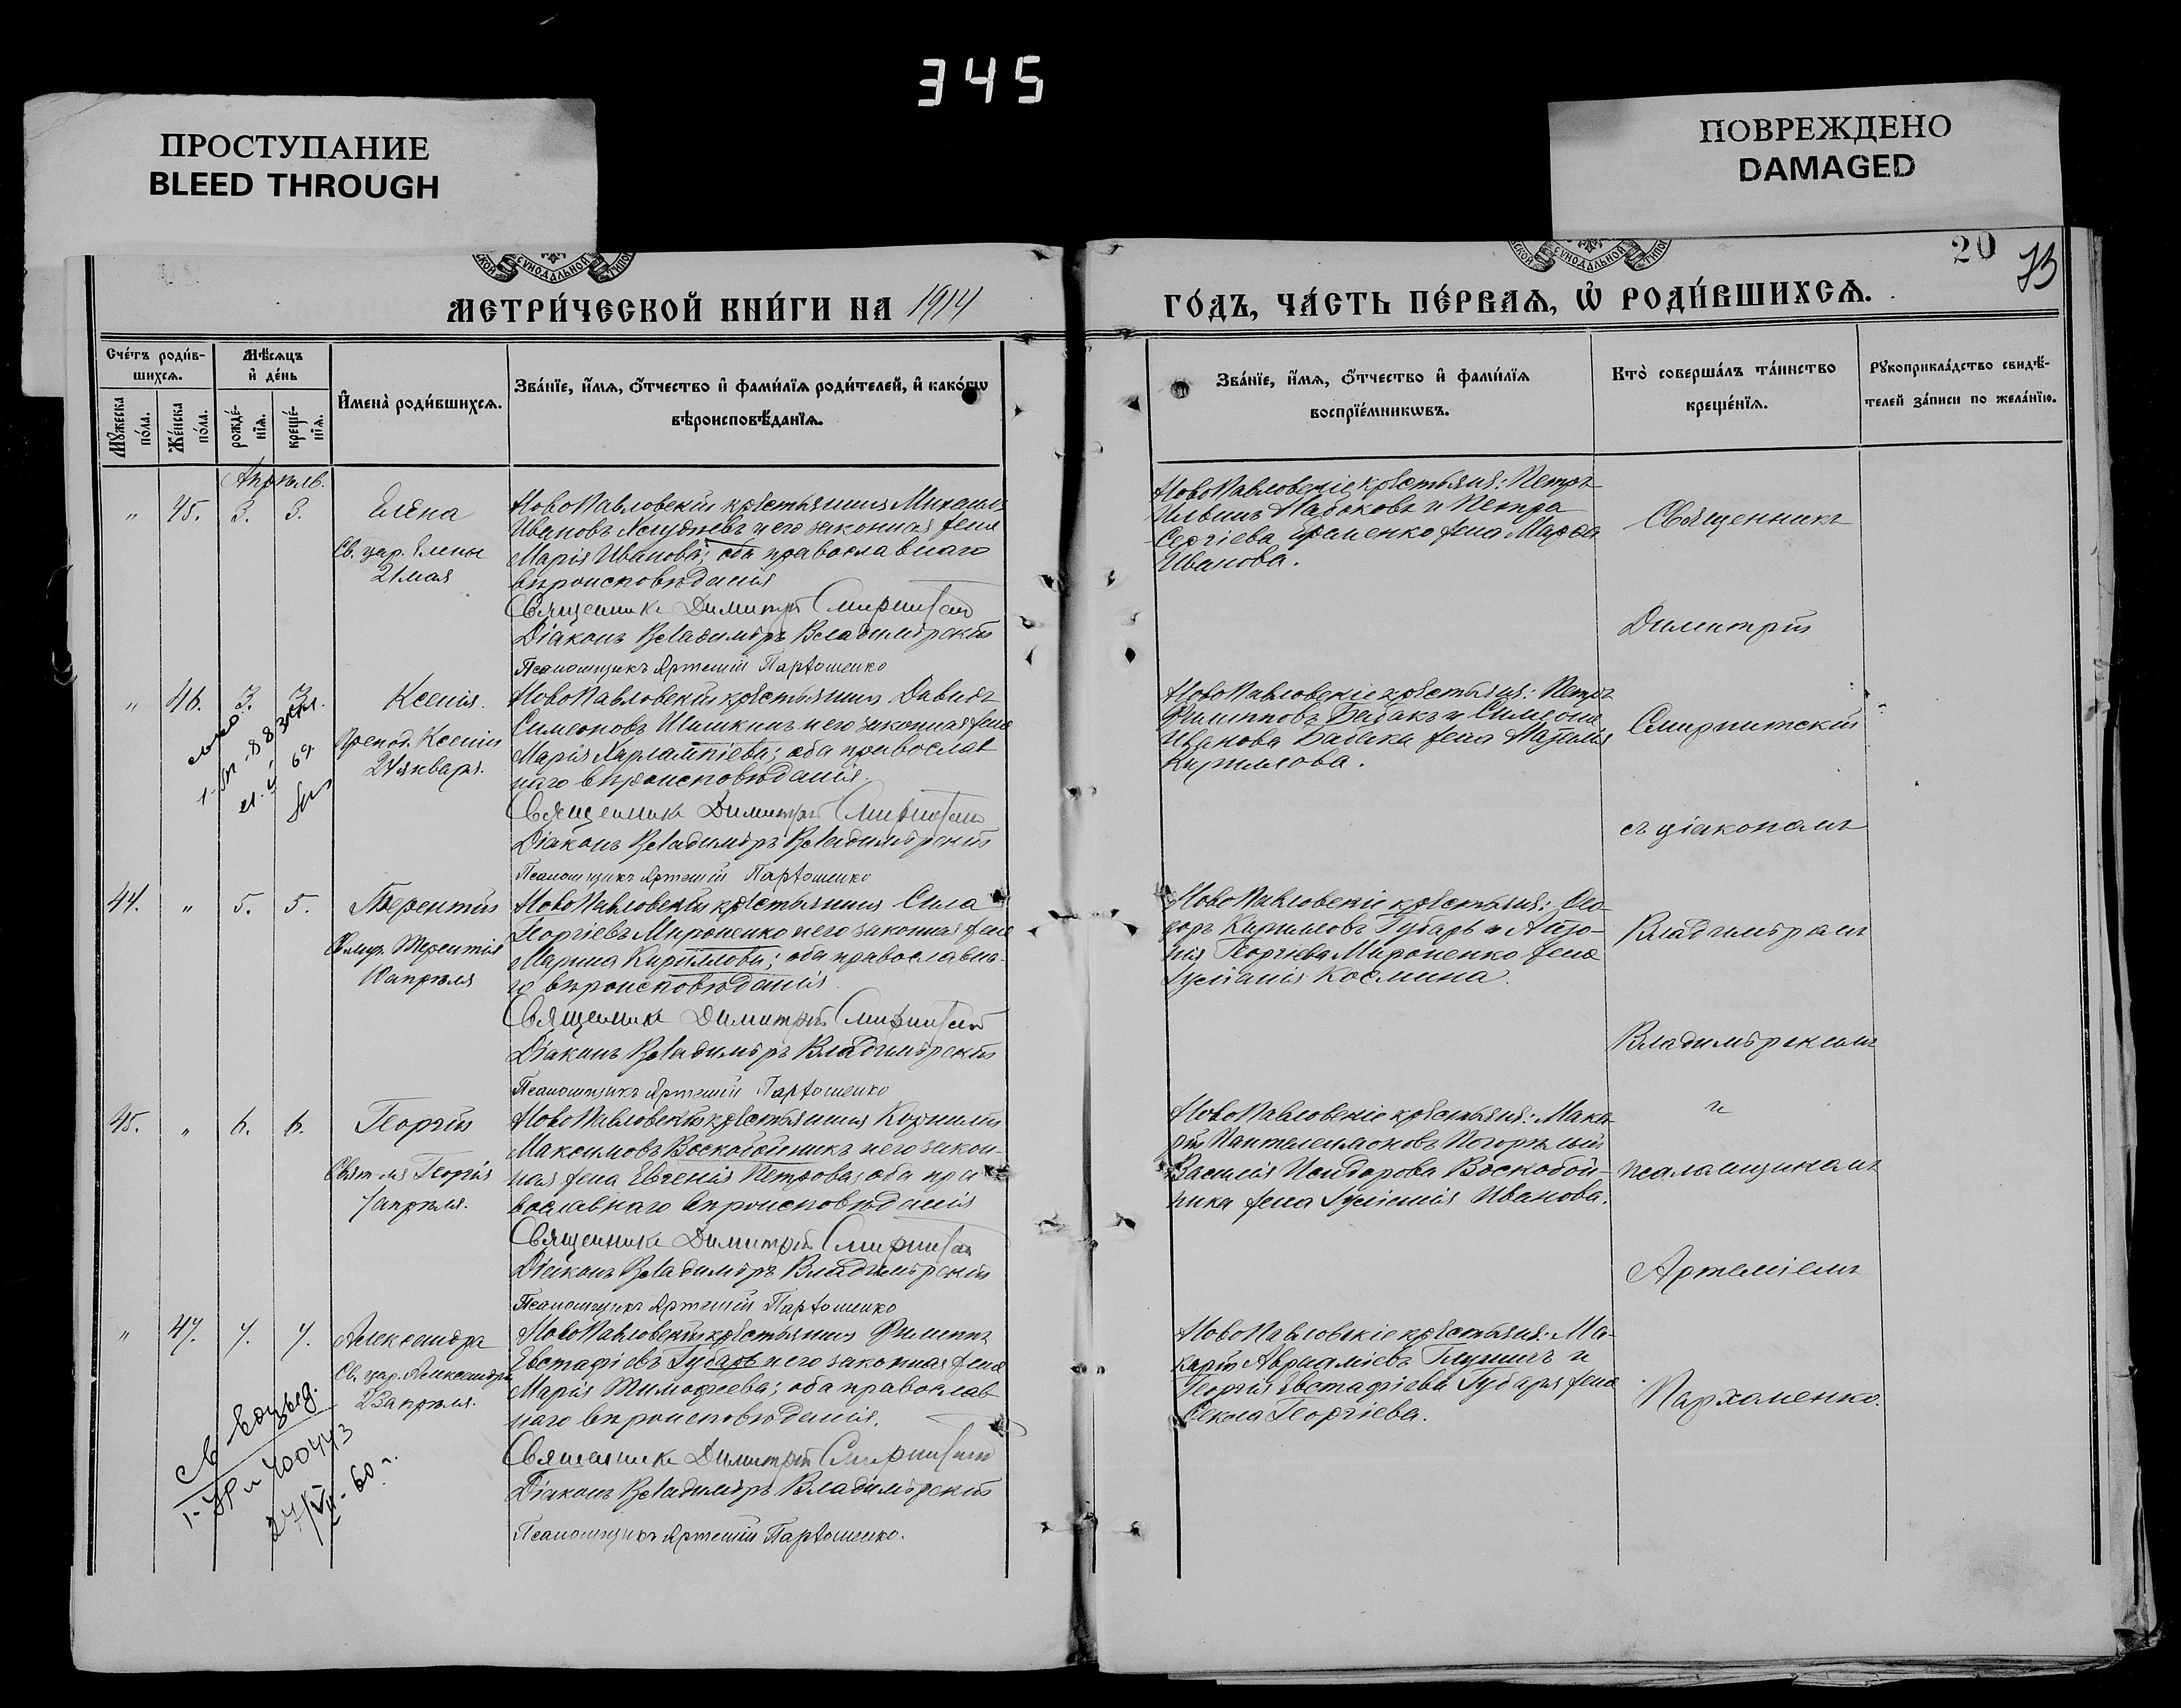 345
ПРОСТУПАНИЕ
BLEED THROUGH
ПОВРЕЖДЕНО
DAMAGED
20
МЕТРИ́ЧЕСКОЙ КНИ́ГИ НА 1914
ГО́ДЪ, ЧА́СТЬ ПЕ́РВАѦ, Ѡ҆ РОДИ́ВШИХСѦ.
Сче́тъ роди́в-
шихсѧ.
Мѣ́сѧцъ
и҆ де́нь
Мꙋ́жеска
по́ла.
Же́нска
по́ла.
рожде́-
нїѧ.
креще́-
нїѧ.
И҆мена̀ роди́вшихсѧ.
Зва́нїе, и҆́мѧ, ѻ҆́тчество и҆ фами́лїѧ роди́телей, и҆ како́гѡ
вѣроисповѣ́данїѧ.
Зва́нїе, и҆́мѧ, ѻ҆́тчество и҆ фами́лїѧ
воспрїе́мникѡвъ.
Кто̀ соверша́лъ та́инство
креще́нїѧ.
Рꙋкоприкла́дство свидѣ́-
телей за́писи по жела́нїю.
Апрѣль.
" 45. 3. 3.
Елена
Св. цар. Елены
21 мая
НовоПавловскій крестьянинъ Михаилъ
Ивановъ и его законная жена
Марія Иванова; оба православнаго
вѣроисповѣданія
Священникъ Димитрій Смирнитскій
Діаконъ Владиміръ Владимірскій
Псаломщикъ Артемій Пархоменко
НовоПавловскіе крестьяне: Петръ
Ильинъ и Петра
Сергіева жена Марѳа
Иванова.
Священникъ
Димитрій
" 46. 3. 3.
Ксенія.
Препод. Ксеніи
24 января.
НовоПавловскій крестьянинъ Давидъ
Симеоновъ Шишкинъ и его законная жена
Марія Харлампіева; оба православ
наго вѣроисповѣданія.
Священникъ Димитрій Смирнитскій
Діаконъ Владиміръ Владимірскій
Псаломщикъ Артемій Пархоменко
НовоПавловскіе крестьяне: Петръ
Филипповъ Бабакъ и Симеона
Иванова Бабака жена
Кириллова.
Смирнитскій
съ діакономъ
44. " 5. 5.
Терентій
Терентія
10 апрѣля
НовоПавловскій крестьянинъ Сила
Георгіевъ Мироненко и его законная жена
Марина Кириллова; оба православна-
го вѣроисповѣданія.
Священникъ Димитрій Смирнитскій
Діаконъ Владиміръ Владимірскій
Псаломщикъ Артемій Пархоменко
НовоПавловскіе крестьяне: Ѳео-
доръ Кирилловъ Губарь и
Георгіева Мироненко жена
Іуліанія Космина.
Владиміромъ
Владимірскимъ
45. " 6. 6.
Георгій
Георгія
7 апрѣля.
НовоПавловскій крестьянинъ Кириллъ
Максимовъ Воскобойникъ и его закон-
ная жена Евгенія Петрова; оба пра
вославнаго вѣроисповѣданія
Священникъ Димитрій Смирнитскій
Діаконъ Владиміръ Владимірскій
Псаломщикъ Артемій Пархоменко
НовоПавловскіе крестьяне: Мака-
рій Пантелеимоновъ Погорѣлый
Василія Исидорова Воскобой-
ника жена Іуліанія Иванова.
и
псаломщикомъ
Артеміемъ
" 47. 7. 7.
Александра
Св. цар. Александры
23 апрѣля.
НовоПавловскій крестьянинъ Филиппъ
Евстафіевъ Губарь и его законная жена
Марія Тимофеева; оба православ
наго вѣроисповѣданія.
Священникъ Димитрій Смирнитскій
Діаконъ Владиміръ Владимірскій
Псаломщикъ Артемій Пархоменко.
НовоПавловскіе крестьяне: Ма-
карій Аврааміевъ и
Георгія Евстафіева Губаря жена
Ѳекла Георгіева.
Пархоменко.